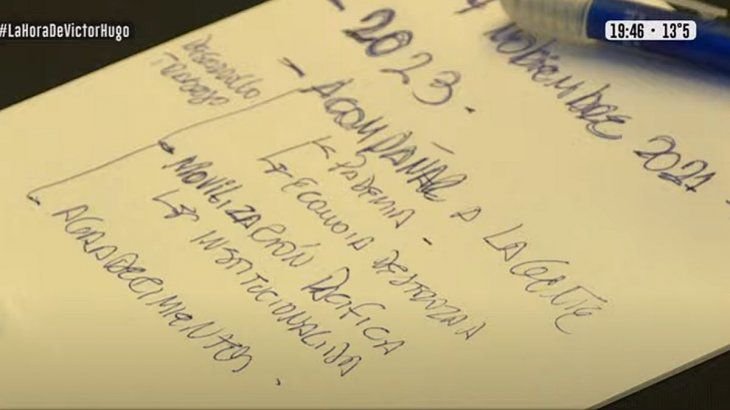 #LaHoraDeVictorHugo
19:46 • 13°5
NOVIEMBRE 2021 -
- 2023.
Desarrollo
Trabajo
- ACOMPAÑAR A LA GENTE
↳ PADEMIA -
↳ ECONOIA DESTRUZADA
- MOVILIZACIÓN PACIFICA
↳ INSTITUCIONALIDA
- AGRADECIMIENTOS.